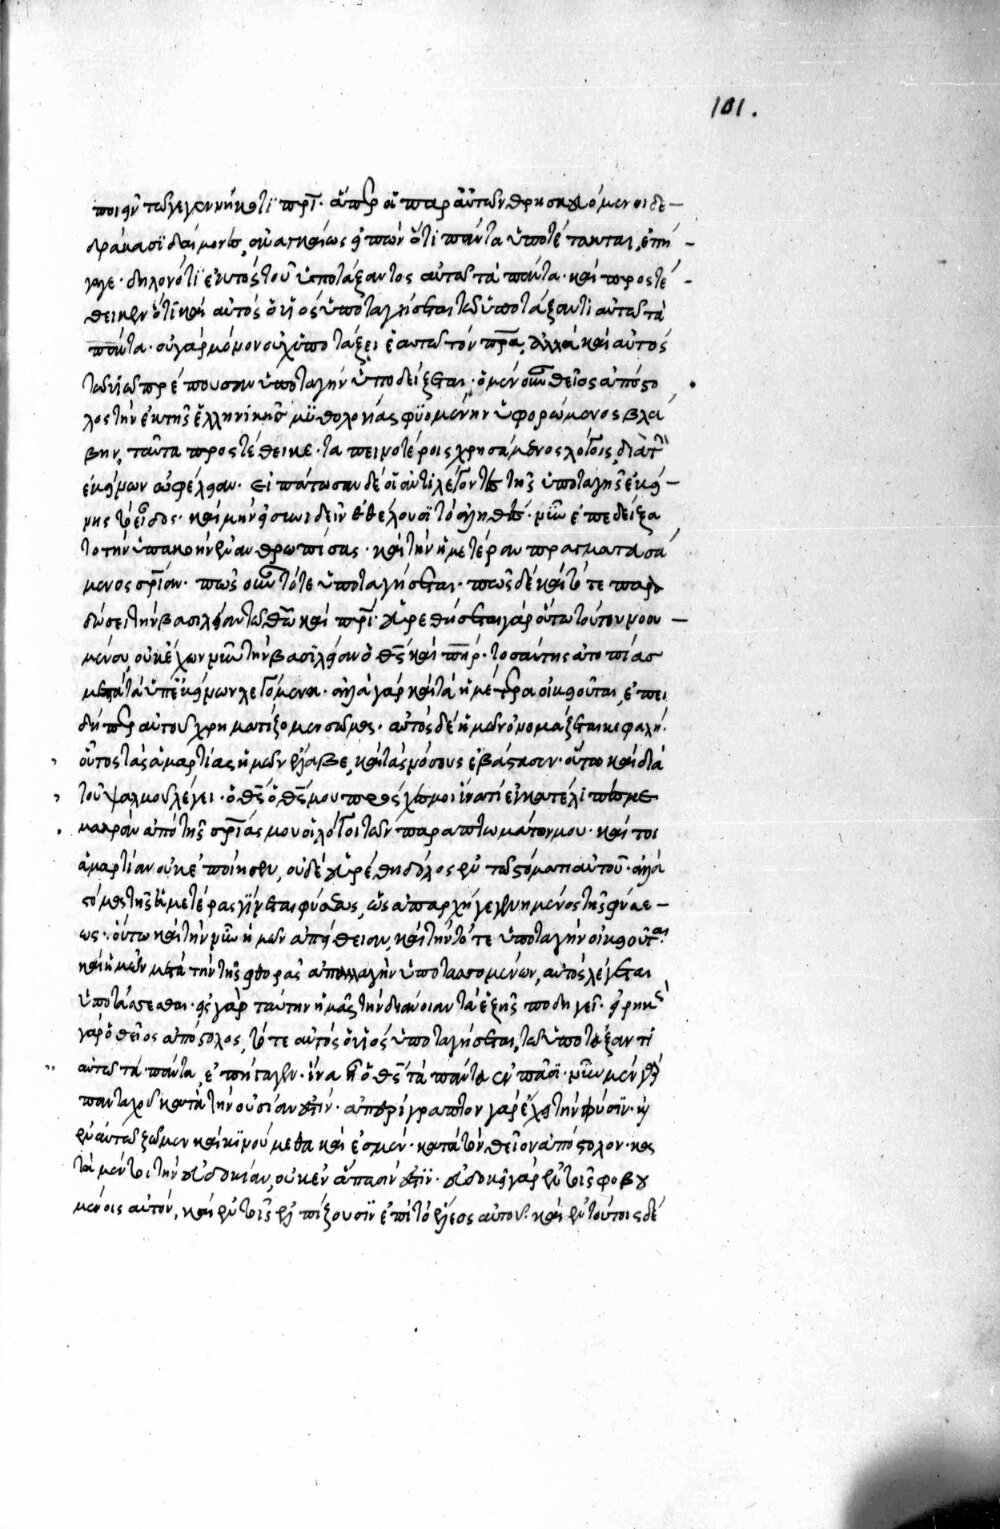 101.
ποιεῖν τῷ γεγεννηκότι πρί· ἅπερ οἱ παρ αὐτῶν θρησκευόμενοι δε-
δράκασϊ δαίμονες, ἀναγκαίως εἰπὼν ὅτι πάντα ὑποτέτακται, ἐπή-
γαγε· δηλονότι ἐκτὸς τοῦ ὑποτάξαντος αὐτῷ τὰ πάντα· καὶ προστέ-
θεικεν ὅτι καὶ αὐτὸς ὁ υἱὸς ὑποταγήσεται τῷ ὑποτάξαντι αὐτῷ τὰ
πάντα· οὐ γὰρ μόνον οὐχ ὑποτάξει ἑαυτῷ τὸν πρα, ἀλλὰ καὶ αὐτὸς
τῷ υἱῷ πρέπουσαν ὑποταγὴν ὑποδείξεται· ὁ μὲν οὖν θεῖος ἀπόστο
λος τὴν ἐκ τῆς ἑλληνικῆς μϋθολογίας φϋομένην ὑφορώμενος βλά
βην, ταῦτα προστέθεικε· ταπεινοτέροις χρησάμενος λόγοις, διὰ τὴν
ἐκείνων ὠφέλειαν· εἰπάτωσαν δὲ οἱ ἀντιλέγοντες τῆς ὑποταγῆς ἐκεί-
νης τὸ εἶδος· καὶ μὴν εἴπερ ἰδεῖν ἐθέλουσϊ τὸ ἀληθές· νῦν ἐπεδείξα
το τὴν ὑπακοὴν ἐνανθρωπίσας· καὶ τὴν ἡμετέραν πραγματευσά
μενος σρίαν· πῶς οὖν τότε ὑποταγήσεται· πῶς δὲ καὶ τότε παρα
δώσει τὴν βασιλείαν τῷ θῶ καὶ πρί· εὑρεθήσεται γὰρ οὕτω τοῦτον νοου-
μένου, οὐκ ἔχων νῦν τὴν βασιλείαν ὁ θς καὶ πηρ· τοσαύτης ἀτοπίας
μεστὰ τὰ ὑπ ἐκείνων λεγόμενα· ἀλλὰ γὰρ καὶ τὰ ἡμέτερα οἰκειοῦται, ἐπει
δήπερ αὐτοῦ χρηματίζομεν σῶμα· αὐτὸς δὲ ἡμῶν ὀνομάζεται κεφαλή·
οὗτος τὰς ἁμαρτίας ἡμῶν ἔλαβε, καὶ τὰς νόσους ἐβάστασεν· οὕτω καὶ διὰ
τοῦ ψαλμοῦ λέγει· ὁ θς ὁ θς μου πρόσχες μοι ἱνατί ἐγκατέλιπές με
μακρὰν ἀπὸ τῆς σρίας μου οἱ λόγοι τῶν παραπτωμάτων μου· καίτοι
ἁμαρτίαν οὐκ ἐποίησεν, οὐδὲ εὑρέθη δόλος ἐν τῷ στόματι αὐτοῦ· ἀλλὰ
στόμα τῆς ἡμετέρας γίνεται φύσεως, ὡς ἀπαρχὴ γεγενημένος τῆς φύσε-
ως· οὕτω καὶ τὴν νῦν ἡμῶν ἀπείθειαν, καὶ τὴν τότε ὑποταγὴν οἰκειοῦται
καὶ ἡμῶν μετὰ τὴν τῆς φθορᾶς ἀπαλλαγὴν ὑποτασσομένων, αὐτὸς λέγεται
ὑποτάσσεσθαι· εἰς γὰρ ταύτην ἡμᾶς τὴν διάνοιαν τὰ ἑξῆς ποδηγεῖ· εἰρηκὼς
γὰρ ὁ θεῖος ἀπόστολος, τότε αὐτὸς ὁ υἱὸς ὑποταγήσεται, τῷ ὑποτάξαντι
αὐτῷ τὰ πάντα, ἐπήγαγεν· ἵνα ἦ ὁ θς τὰ πάντα ἐν πᾶσϊ· νῦν μὲν γὰρ
πανταχοῦ κατὰ τὴν οὐσίαν ἐστίν· ἀπερίγραπτον γὰρ ἔχει τὴν φύσϊν· καὶ
ἐν αὐτῷ ζῶμεν καὶ κϊνούμεθα καὶ ἐσμέν· κατὰ τὸν θεῖον ἀπόστολον· κα
τὰ μέντοι τὴν εὐδοκίαν, οὐκ ἐν ἅπασίν ἐστϊν· εὐδοκεῖ γὰρ ἐν τοῖς φοβου
μένοις αὐτόν, καὶ ἐν τοῖς ἐλπίζουσϊν ἐπὶ τὸ ἔλεος αὐτοῦ· καὶ ἐν τούτοις δὲ